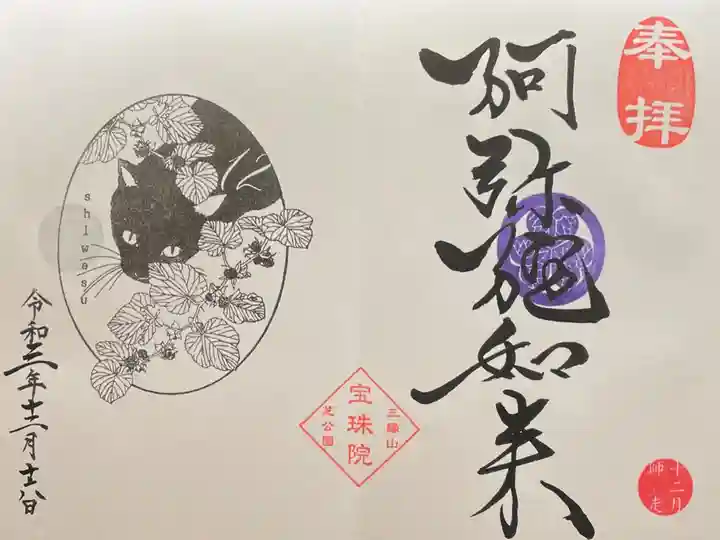 奉拝
阿弥陀如来
十二月
師走
三縁山
宝珠院
芝公園
shiwasu
令和三年十二月十六日